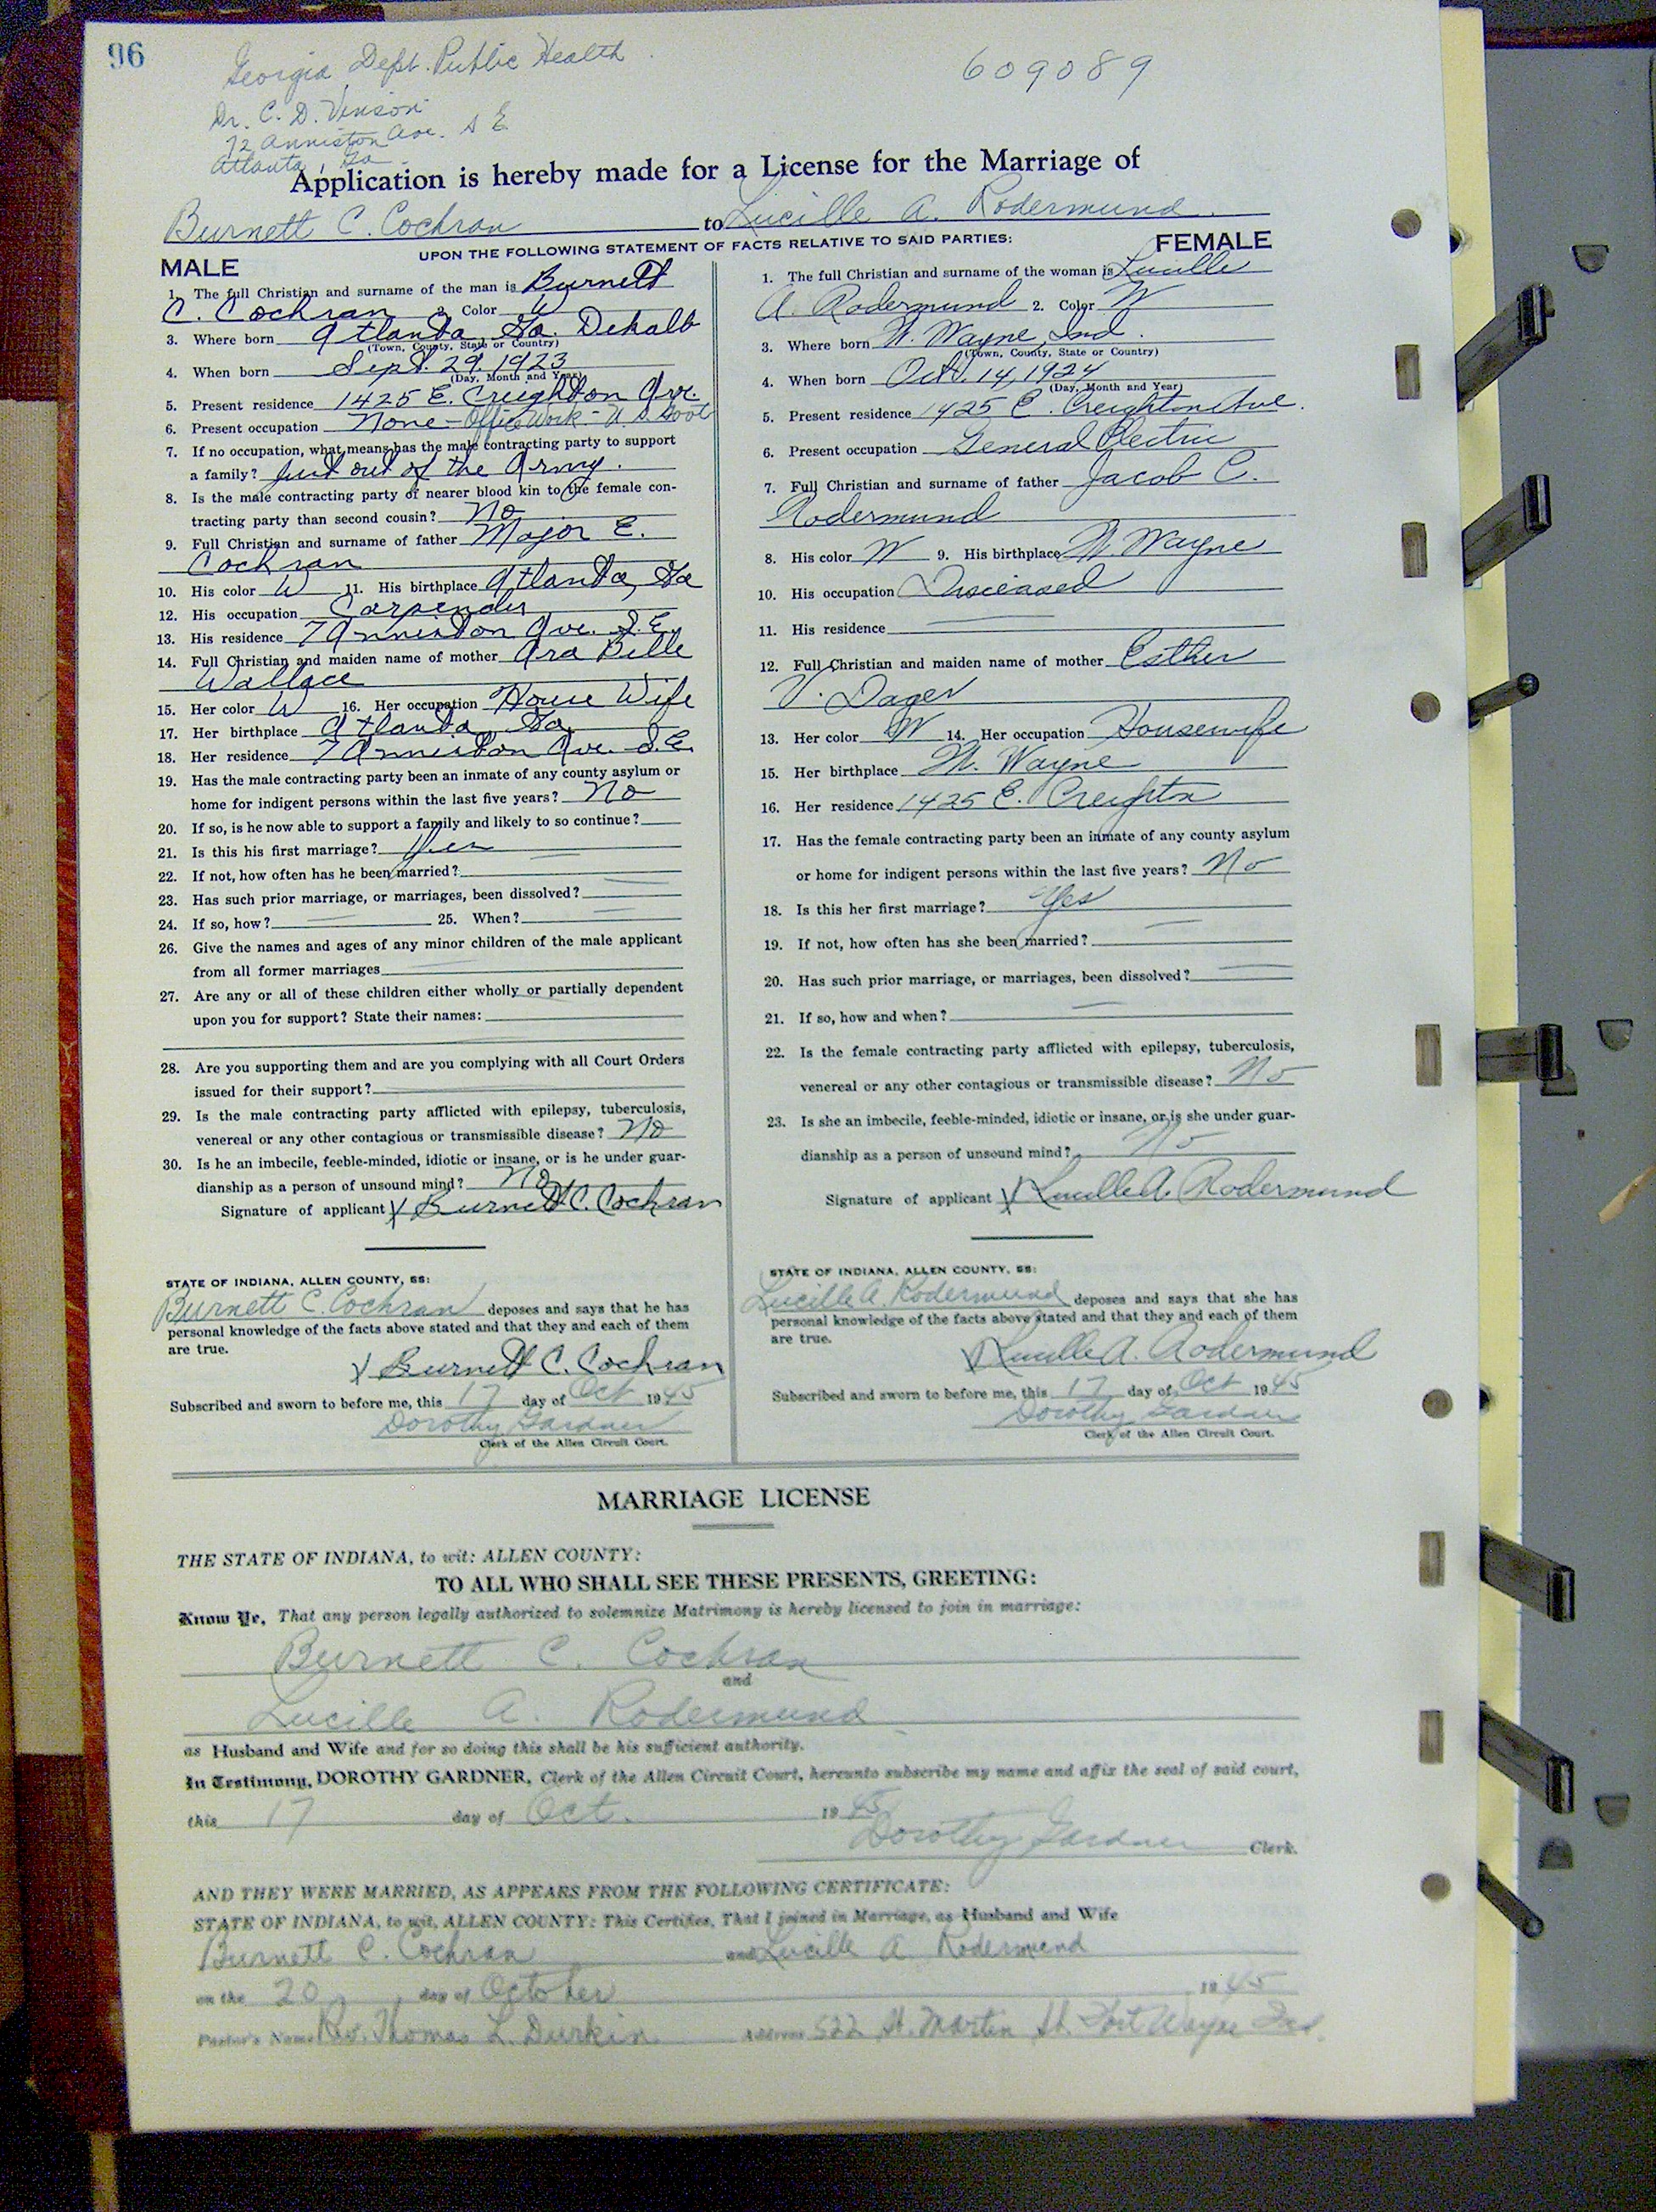 96
Georgia Dept. Public Health
609089
Dr. C. D. Vinson
72 Anniston Ave. S E
Atlanta, Ga
Application is hereby made for a License for the Marriage of
Burnett C. Cochran to Lucille A. Rodermund
UPON THE FOLLOWING STATEMENT OF FACTS RELATIVE TO SAID PARTIES:
MALE
1. The full Christian and surname of the man is Burnett
C. Cochran 2. Color W
3. Where born Atlanta Ga. Dekalb
(Town, County, State or Country)
4. When born Sept. 29, 1923
(Day, Month and Year)
5. Present residence 1425 E. Creighton Ave.
6. Present occupation None - Office Work - U.S. Govt
7. If no occupation, what means has the male contracting party to support
a family? Just out of the Army.
8. Is the male contracting party of nearer blood kin to the female con-
tracting party than second cousin? No
9. Full Christian and surname of father Major E.
Cochran
10. His color W 11. His birthplace Atlanta, Ga
12. His occupation Carpender
13. His residence 7 Anniston Ave. S.E.
14. Full Christian and maiden name of mother Ara Belle
Wallace
15. Her color W 16. Her occupation House Wife
17. Her birthplace Atlanta Ga.
18. Her residence 7 Anniston Ave. S.E.
19. Has the male contracting party been an inmate of any county asylum or
home for indigent persons within the last five years? No
20. If so, is he now able to support a family and likely to so continue?
21. Is this his first marriage? Yes
22. If not, how often has he been married?
23. Has such prior marriage, or marriages, been dissolved?
24. If so, how? 25. When?
26. Give the names and ages of any minor children of the male applicant
from all former marriages
27. Are any or all of these children either wholly or partially dependent
upon you for support? State their names:
28. Are you supporting them and are you complying with all Court Orders
issued for their support?
29. Is the male contracting party afflicted with epilepsy, tuberculosis,
venereal or any other contagious or transmissible disease? No
30. Is he an imbecile, feeble-minded, idiotic or insane, or is he under guar-
dianship as a person of unsound mind? No
Signature of applicant X Burnett C. Cochran
STATE OF INDIANA, ALLEN COUNTY, SS:
Burnett C. Cochran deposes and says that he has
personal knowledge of the facts above stated and that they and each of them
are true.
X Burnett C. Cochran
Subscribed and sworn to before me, this 17 day of Oct 1945
Dorothy Gardner
Clerk of the Allen Circuit Court.
FEMALE
1. The full Christian and surname of the woman is Lucille
A. Rodermund 2. Color W
3. Where born Ft. Wayne, Ind.
(Town, County, State or Country)
4. When born Oct. 14, 1924
(Day, Month and Year)
5. Present residence 1425 E. Creighton Ave.
6. Present occupation General Electric
7. Full Christian and surname of father Jacob C.
Rodermund
8. His color W 9. His birthplace Ft. Wayne
10. His occupation Deceased
11. His residence
12. Full Christian and maiden name of mother Esther
V. Dager
13. Her color W 14. Her occupation Housewife
15. Her birthplace Ft. Wayne
16. Her residence 1425 E. Creighton
17. Has the female contracting party been an inmate of any county asylum
or home for indigent persons within the last five years? No
18. Is this her first marriage? Yes
19. If not, how often has she been married?
20. Has such prior marriage, or marriages, been dissolved?
21. If so, how and when?
22. Is the female contracting party afflicted with epilepsy, tuberculosis,
venereal or any other contagious or transmissible disease? No
23. Is she an imbecile, feeble-minded, idiotic or insane, or is she under guar-
dianship as a person of unsound mind? No
Signature of applicant X Lucille A. Rodermund
STATE OF INDIANA, ALLEN COUNTY, SS:
Lucille A. Rodermund deposes and says that she has
personal knowledge of the facts above stated and that they and each of them
are true.
X Lucille A. Rodermund
Subscribed and sworn to before me, this 17 day of Oct 1945
Dorothy Gardner
Clerk of the Allen Circuit Court.
MARRIAGE LICENSE
THE STATE OF INDIANA, to wit: ALLEN COUNTY:
TO ALL WHO SHALL SEE THESE PRESENTS, GREETING:
Know Ye, That any person legally authorized to solemnize Matrimony is hereby licensed to join in marriage:
Burnett C. Cochran
and
Lucille A. Rodermund
as Husband and Wife and for so doing this shall be his sufficient authority.
In Testimony, DOROTHY GARDNER, Clerk of the Allen Circuit Court, hereunto subscribe my name and affix the seal of said court,
this 17 day of Oct. 1945
Dorothy Gardner Clerk.
AND THEY WERE MARRIED, AS APPEARS FROM THE FOLLOWING CERTIFICATE:
STATE OF INDIANA, to wit, ALLEN COUNTY: This Certifies, That I joined in Marriage, as Husband and Wife
Burnett C. Cochran and Lucille A. Rodermund
on the 20 day of October 1945
Pastor's Name Rev. Thomas L. Durkin Address 522 St. Martin St. Fort Wayne Ind.